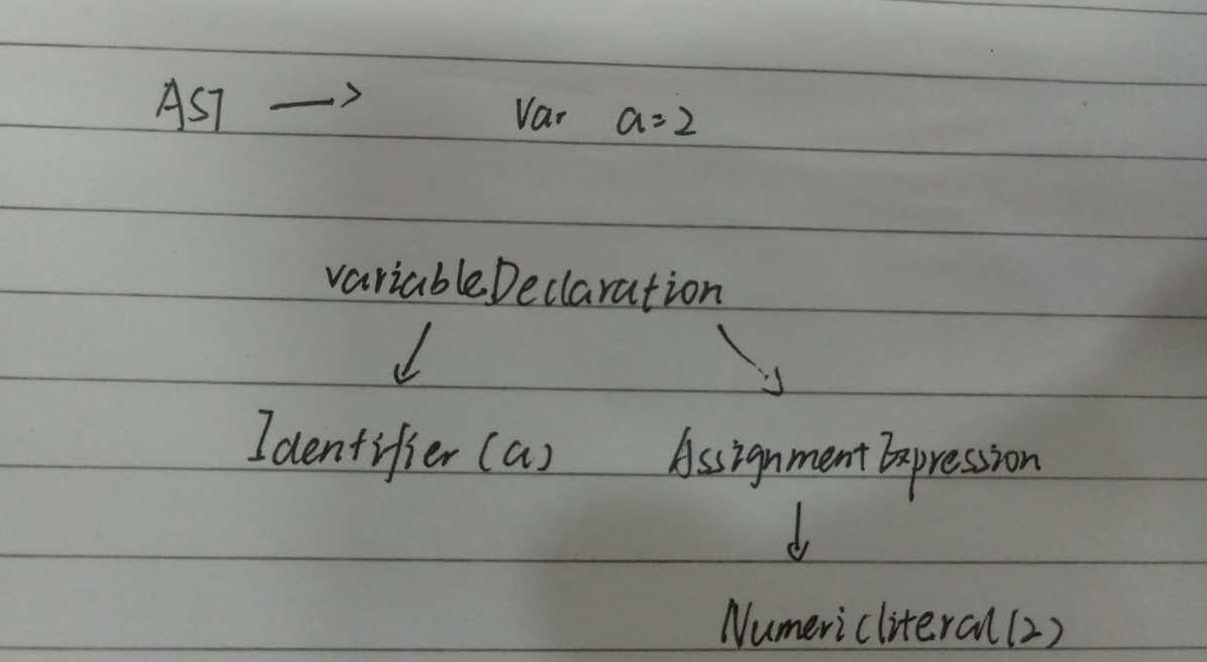 AST → var a=2
variableDeclaration
Identifier (a) AssignmentExpression
Numericliteral(2)